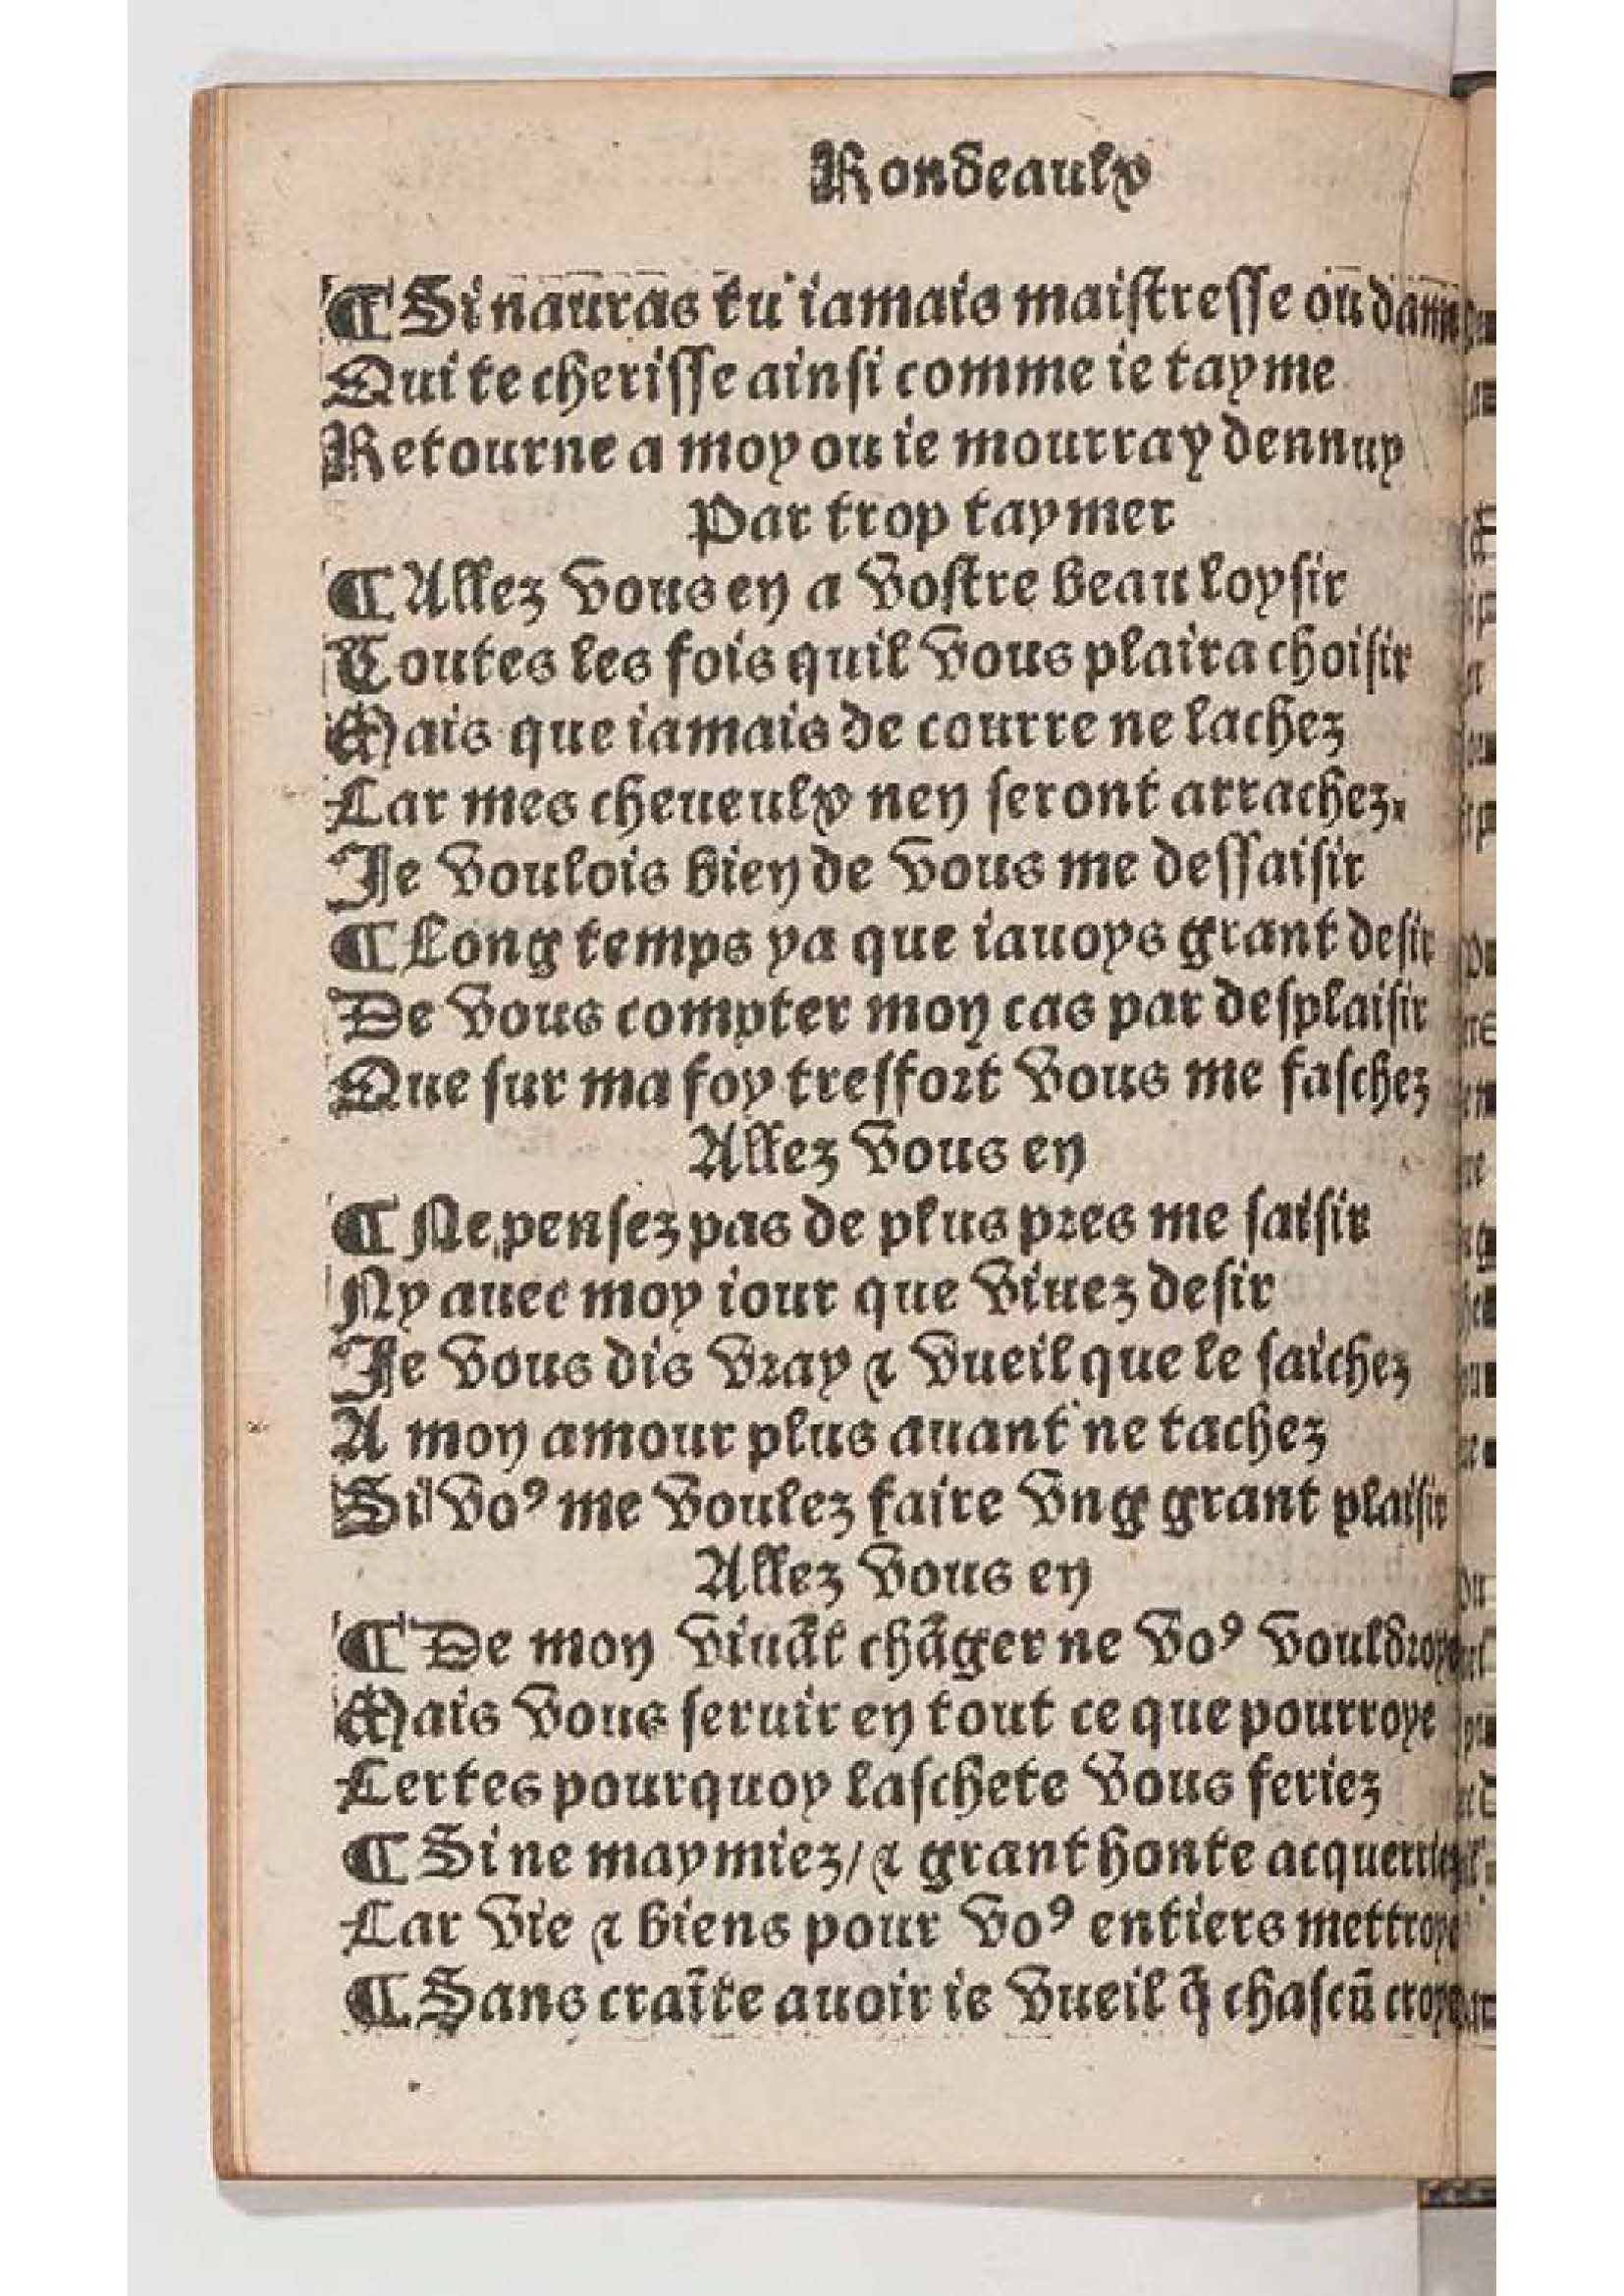 Rondeaulx
¶ Si nauras tu iamais maistresse ou dame
Qui te cherisse ainsi comme ie tayme
Retourne a moy ou ie mourray dennuy
Par trop taymer
¶ Allez vous en a vostre beau loysir
Toutes les fois quil vous plaira choisir
Mais que iamais de courre ne lachez
Car mes cheueulx nen seront arrachez.
Je voulois bien de vous me dessaisir
¶ Long temps ya que iauoys grant desir
De vous compter mon cas par desplaisir
Que sur ma foy tresfort vous me faschez
Allez vous en
¶ Ne pensez pas de plus pres me saisir
Ny auec moy iour que viuez desir
Je vous dis vray ⁊ vueil que le saichez
A mon amour plus auant ne tachez
Si voꝰ me voulez faire vng grant plaisir
Allez vous en
¶ De mon viuãt chãger ne voꝰ vouldroye
Mais vous seruir en tout ce que pourroye
Certes pourquoy laschete vous feriez
¶ Si ne maymiez / ⁊ grant honte acquerriez
Car vie ⁊ biens pour voꝰ entiers mettroye
¶ Sans craĩte auoir ie vueil q̃ chascũ croye